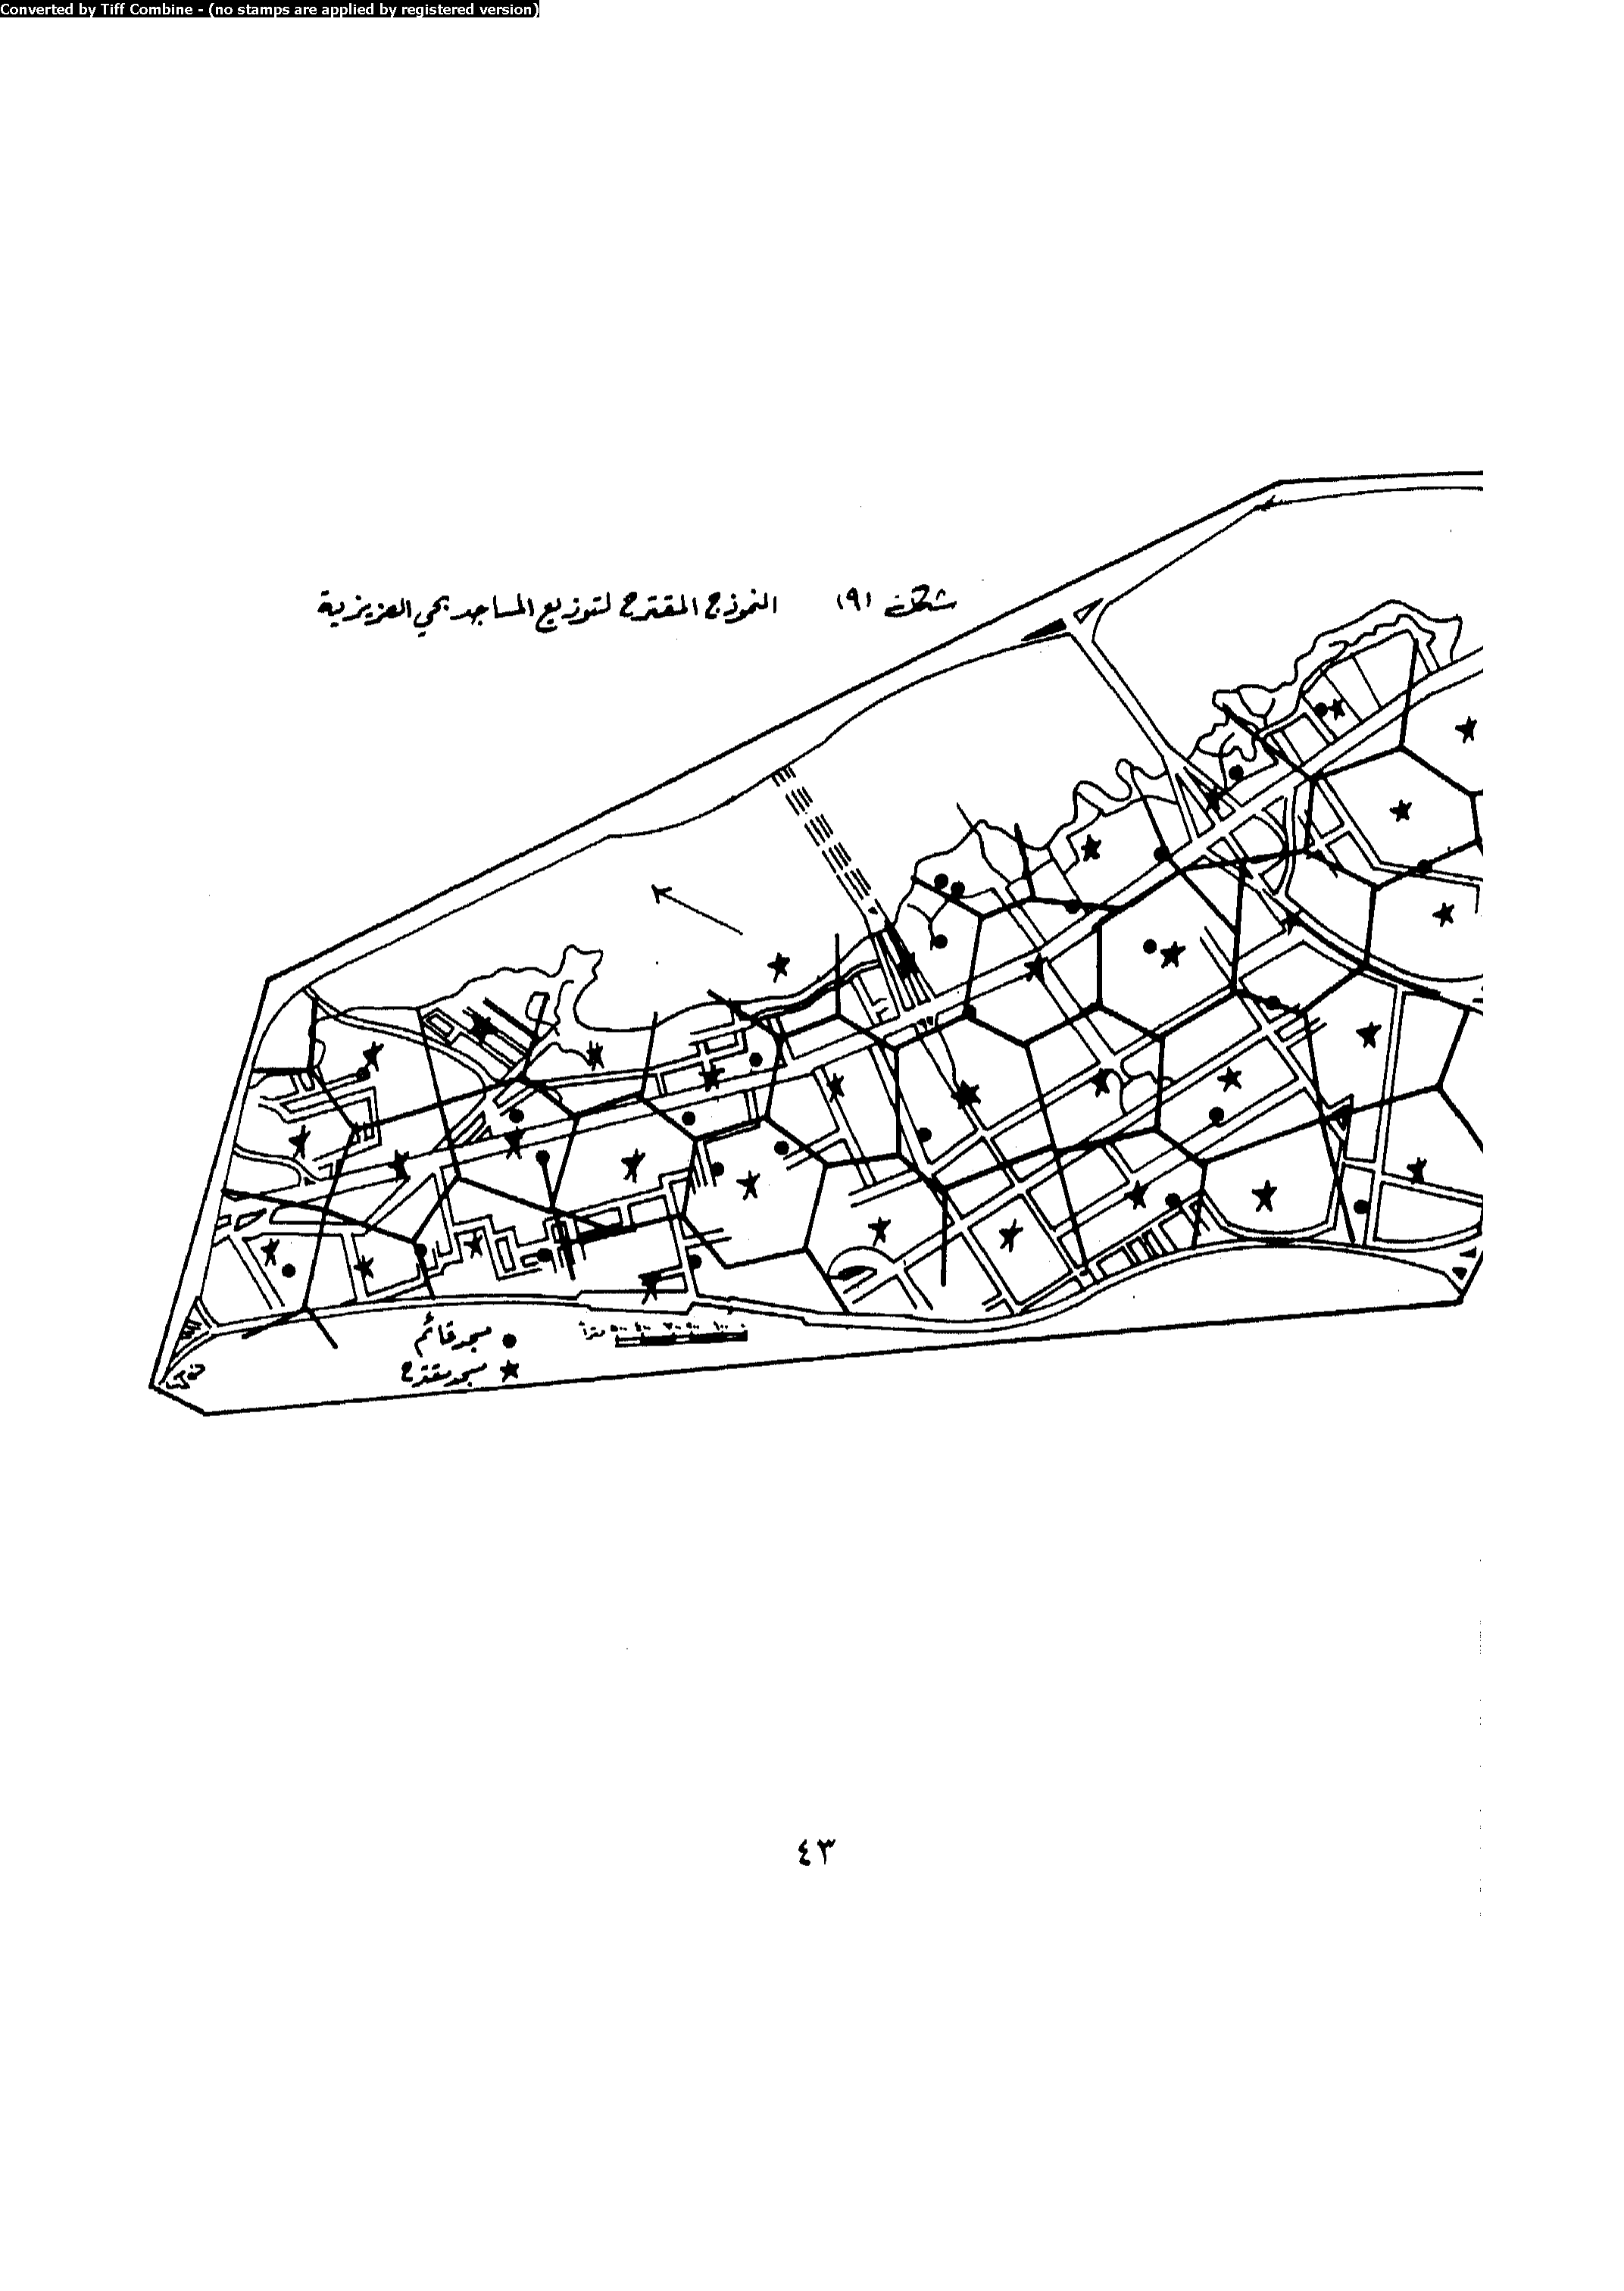 Converted by Tiff Combine - (no stamps are applied by registered version)
شكل (٩) النموذج المقترح لتوزيع المساجد بحي العزيزية
مسجد قائم
مسجد مقترح
٤٣